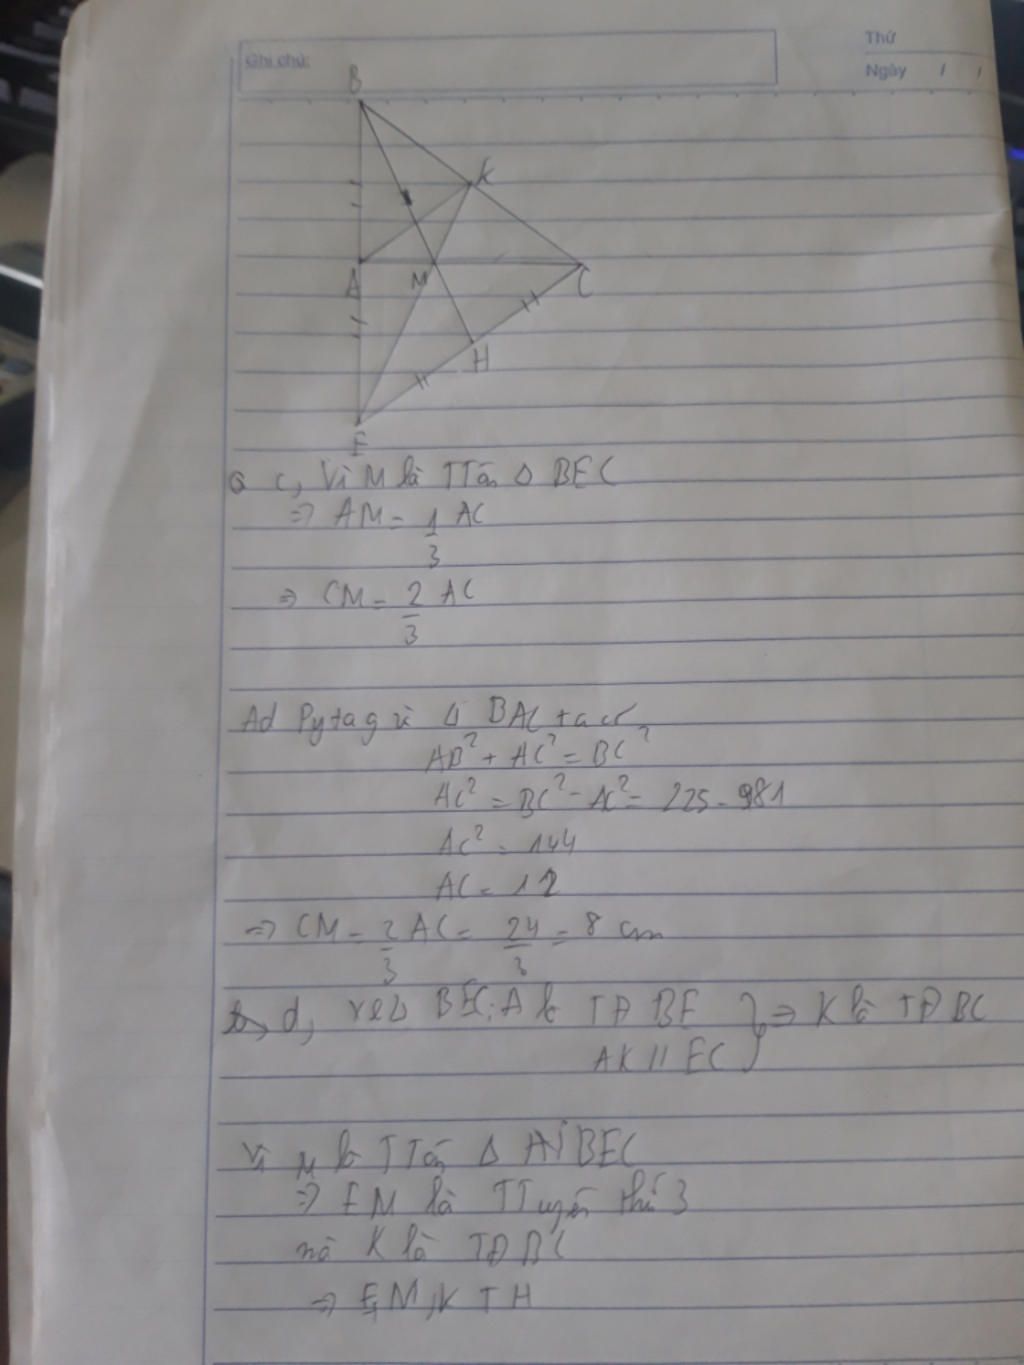 Ghi chú:
Thứ
Ngày / /
B
K
A
M
C
H
E
c, Vì M là TTâm Δ BEC
=> AM = 1/3 AC
=> CM = 2/3 AC
Ad Pytago Δ BAC ta có
AB² + AC² = BC²
AC² = BC² - AC² = 225 - 81
AC² = 144
AC = 12
=> CM = 2/3 AC = 24/3 = 8 cm
d, xét Δ BEC: A là TĐ BE } => K là TĐ BC
AK // EC
Vì M là TTâm Δ BEC
=> EM là TTuyến thứ 3
mà K là TĐ BC
=> E, M, K TH